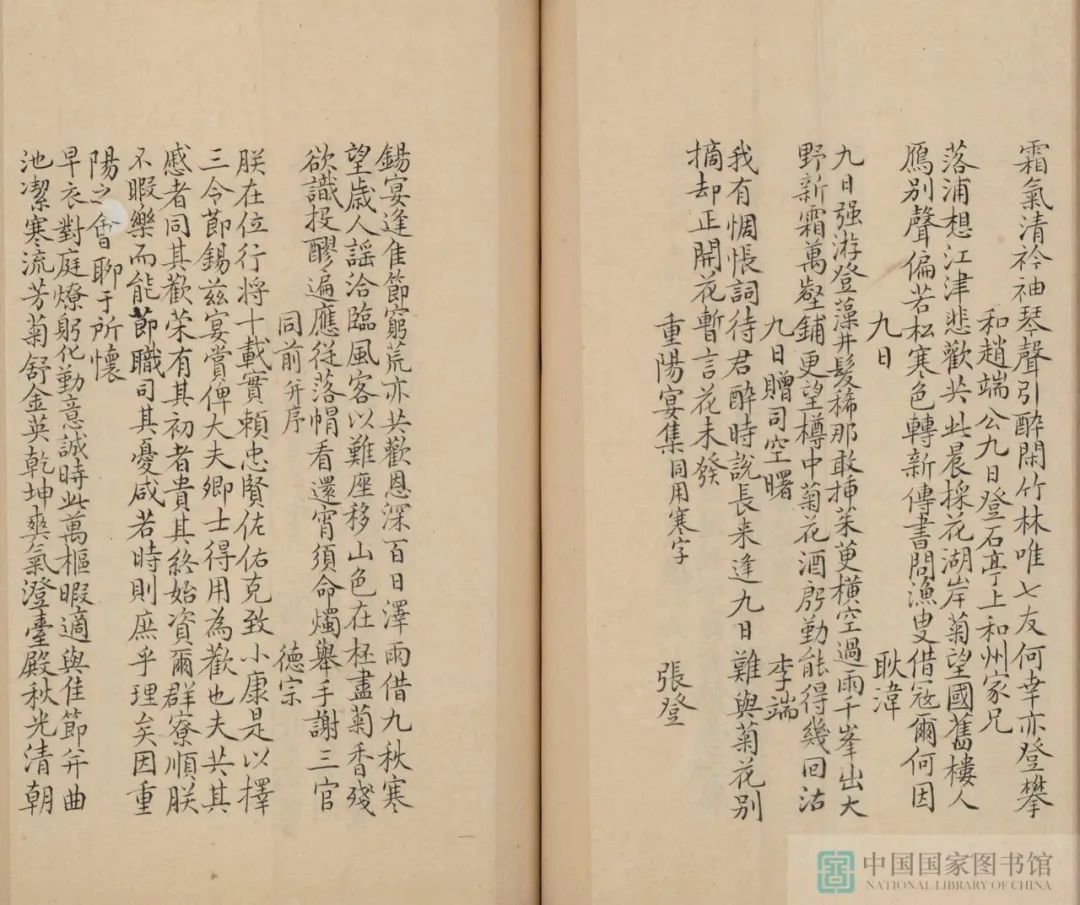 霜氣清衿袖琴聲引醉閑竹林唯七友何幸亦登攀
和趙端公九日登石亭上和州家兄
落浦想江津悲歡共此晨採花湖岸菊望國舊樓人
鴈別聲偏苦松寒色轉新傳書問漁叟借冦爾何因
九日 耿湋
九日强游登藻井髮稀那敢揷茱萸橫空過雨千峯出大
野新霜萬壑鋪更望樽中菊花酒殷勤能得幾回沽
九日贈司空曙 李端
我有惆悵詞待君醉時說長来逢九日難與菊花別
摘却正開花暫言花未發
重陽宴集同用寒字 張登
錫宴逢佳節窮荒亦共歡恩深百日澤雨借九秋寒
望歳人謡洽臨風客以難座移山色在柸盡菊香殘
欲識投醪遍應從落帽看還宵須命燭舉手謝三官
同前并序 德宗
朕在位行將十載實頼忠賢佐佑克致小康是以擇
三令節錫兹宴賞俾大夫卿士得用為歡也夫共其
慼者同其歡荣有其初者貴其終始資爾群寮順朕
不暇樂而能節職司其憂咸若時則庶乎理矣因重
陽之會聊于所懷
早衣對庭燎躬化勤意誠時此萬樞暇適與佳節并曲
池潔寒流芳菊舒金英乾坤爽氣澄臺殿秋光清朝
中国国家图书馆
NATIONAL LIBRARY OF CHINA